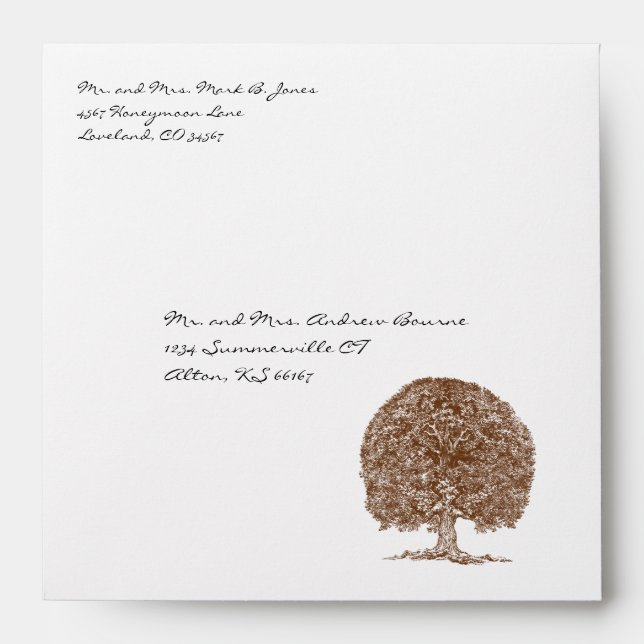 Mr. and Mrs. Mark B. Jones
4567 Honeymoon Lane
Loveland, CO 34567
Mr. and Mrs. Andrew Bourne
1234 Summerville CT
Alton, KS 66167